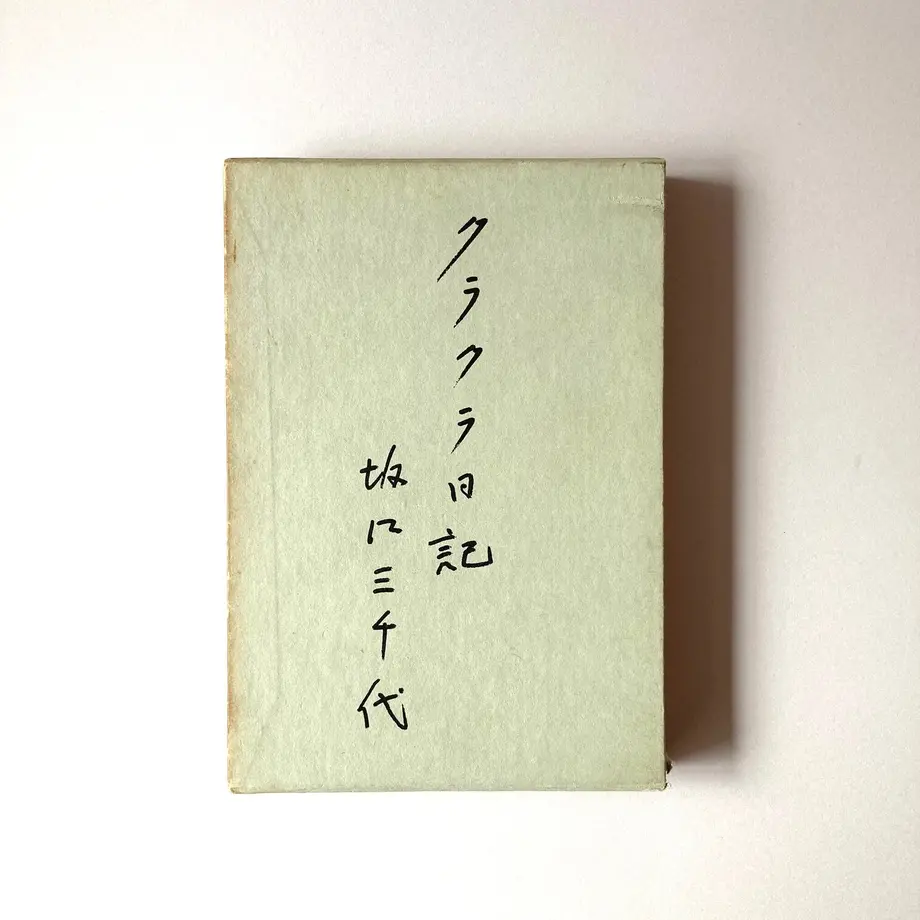 クラクラ日記
坂口三千代